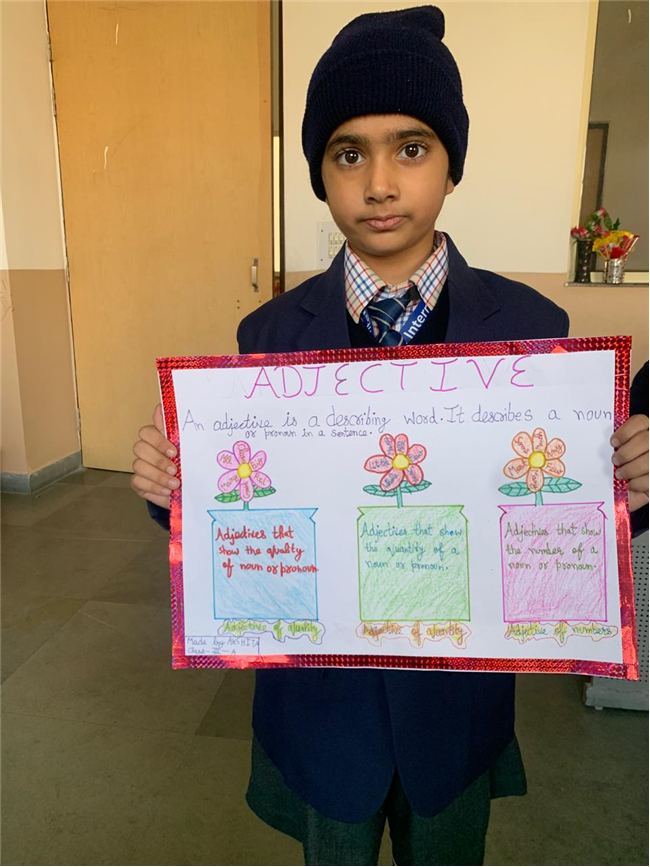 ADJECTIVE
An adjective is a describing word. It describes a noun
or pronoun in a sentence.
Adjectives that
show the quality
of noun or pronoun.
Adjectives that show
the quantity of a
noun or pronoun.
Adjectives that show
the number of a
noun or pronoun.
Adjective of quality
Adjective of quantity
Adjective of numbers
Made by- ARCHITA
Class- III-A
Intern